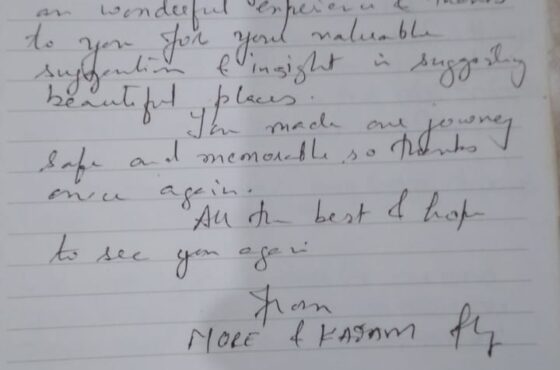 an wonderful experience & thanks
to you for your valuable
suggestion & insight in suggesting
beautiful places.
You made our journey
safe and memorable so thanks
once again.
All the best & hope
to see you again
from
MORE & KADAM fly